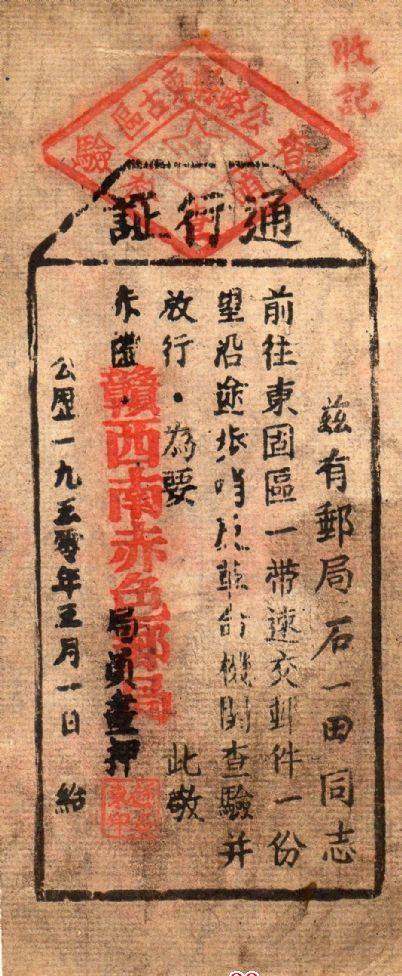 收記
公略縣東古區
查驗
通行証
茲有郵局石一田同志
前往東固區一帶速交郵件一份
望沿途步哨及革命機關查驗并
放行·為要 此敬
赤禮·
贛西南赤色郵局
局員查押
公歷一九五零年五月一日 給